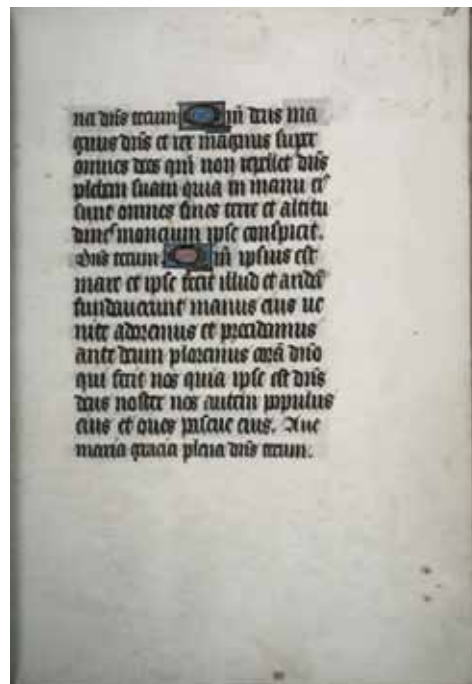 na dn̄s tecum Qm̄ deus ma
gnus dn̄s et rex magnus super
omnes deos qm̄ non repellet dn̄s
plebem suam quia in manu eꝰ
sunt omnes fines terre et altitu
dines moncium ipse conspicit.
Dn̄s tecum. Qm̄ ipsius est
mare et ipse fecit illud et
fundauerunt manus eius ue
nite adoremus et precidamus
ante deum ploremus corā dn̄o
qui fecit nos quia ipse est dn̄s
deus noster nos autem populus
eius et oues pascue eius. Aue
maria gracia plena dn̄s tecum.